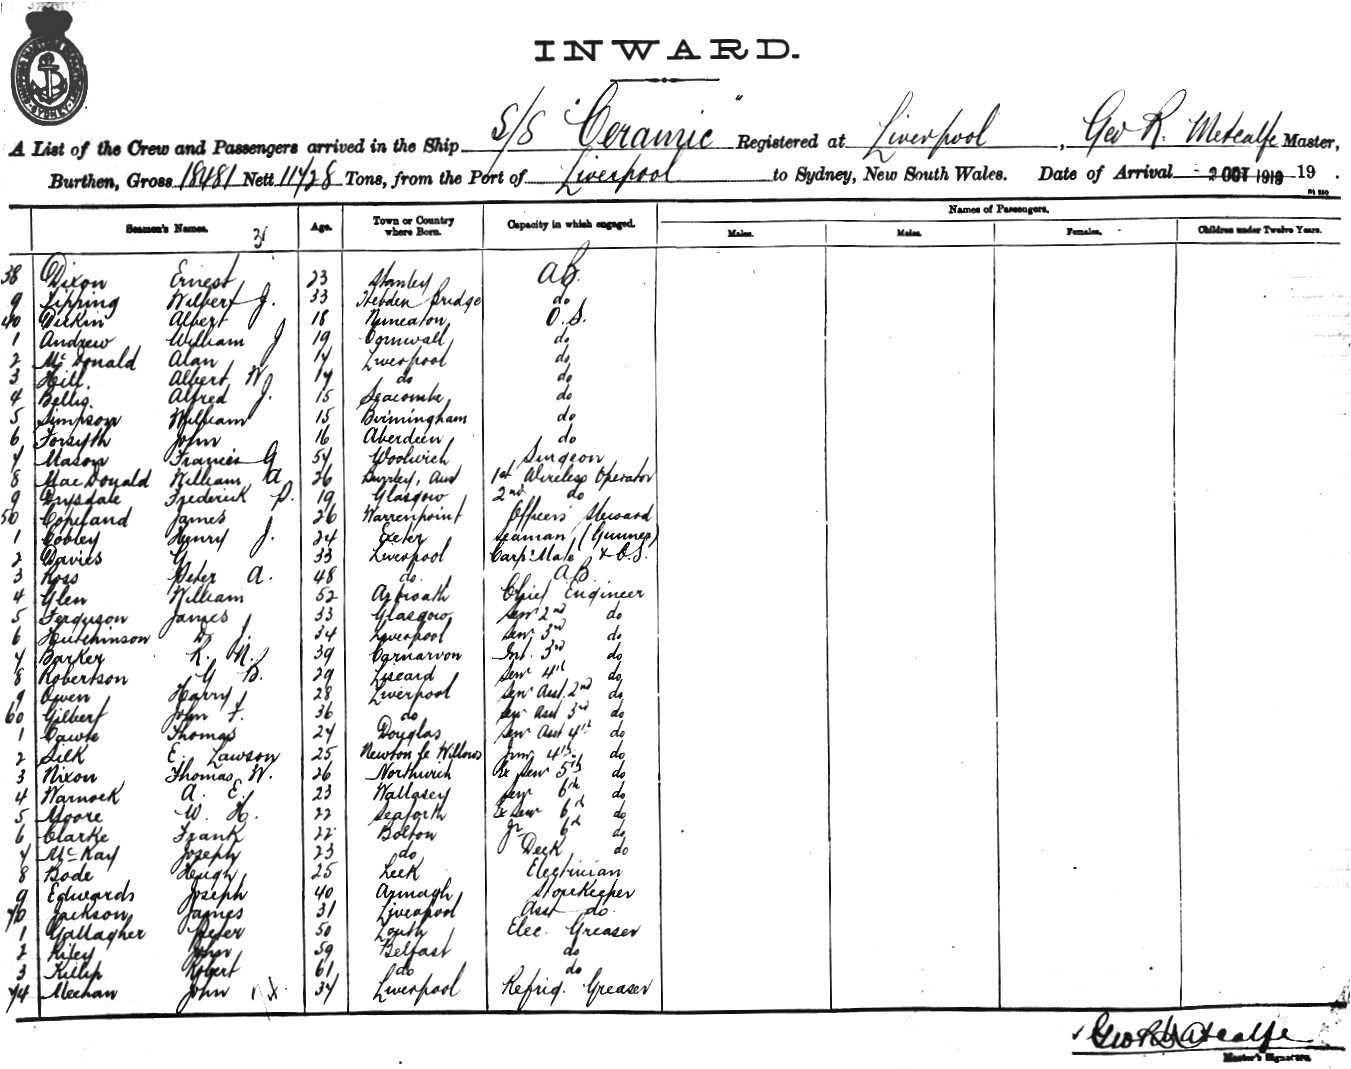 INWARD.
A List of the Crew and Passengers arrived in the Ship S/S "Ceramic" Registered at Liverpool, Geo R. Metcalfe Master,
Burthen, Gross 18481 Nett 11728 Tons, from the Port of Liverpool to Sydney, New South Wales. Date of Arrival - 2 OCT 1919 19 .
Seamen's Names. Age. Town or Country where Born. Capacity in which engaged. Names of Passengers.
Males. Males. Females. Children under Twelve Years.
38 Dixon Ernest 23 Stanley AB.
9 Zipping Wilbert J. 33 Hebden Bridge do
40 Dickin Albert 18 Nuneaton O.S.
1 Andrew William J 19 Cornwall do
2 McDonald Alan 17 Liverpool do
3 Hill. Albert W 17 do do
4 Bellis. Alfred J. 15 Seacombe do
5 Simpson William 15 Birmingham do
6 Forsyth John 16 Aberdeen do
7 Mason Francis G 57 Woolwich Surgeon
8 MacDonald William A 26 Aus 1st Wireless Operator
9 Drysdale Frederick D. 19 Glasgow 2nd do
50 Copeland James 26 Warrenpoint Officers' Steward
1 Cooley Henry J. 24 Exeter Seaman (Gunner)
2 Davies G 33 Liverpool Carp' Mate & O.S.
3 Ross Peter A. 48 do. AB
4 Glen William 52 Arbroath Chief Engineer
5 Ferguson James 33 Glasgow Senr 2nd do
6 Hutchinson D J. 34 Liverpool Senr 3rd do
7 Barker R. N. 39 Carnarvon Int. 3rd do
8 Robertson G B. 29 Liscard Senr 4th do
9 Owen Harry 28 Liverpool Senr Asst. 2nd do
60 Gilbert John F. 36 do Senr Asst 3rd do
1 Cawte Thomas 27 Douglas Senr Asst 4th do
2 Silk E. Lawson 25 Newton le Willows Junr 4th. do
3 Nixon Thomas W. 26 Northwich Ex Senr 5th do
4 Warnock A. E. 23 Wallasey Senr 6th do
5 Moore W. H. 22 Seaforth Ex Senr 6th do
6 Clarke Frank 22 Bolton Jr 6th do
7 McKay Joseph 23 do Deck do
8 Bode Hugh 25 Leek Electrician
9 Edwards Joseph 40 Armagh Storekeeper
70 Jackson James 31 Liverpool Asst do.
1 Gallagher Peter 50 Louth Elec. Greaser
2 Riley John 59 Belfast do
3 Killip Robert 61 do do
74 Meehan John 37 Liverpool Refrig. Greaser
Geo R Metcalfe
Master's Signature.